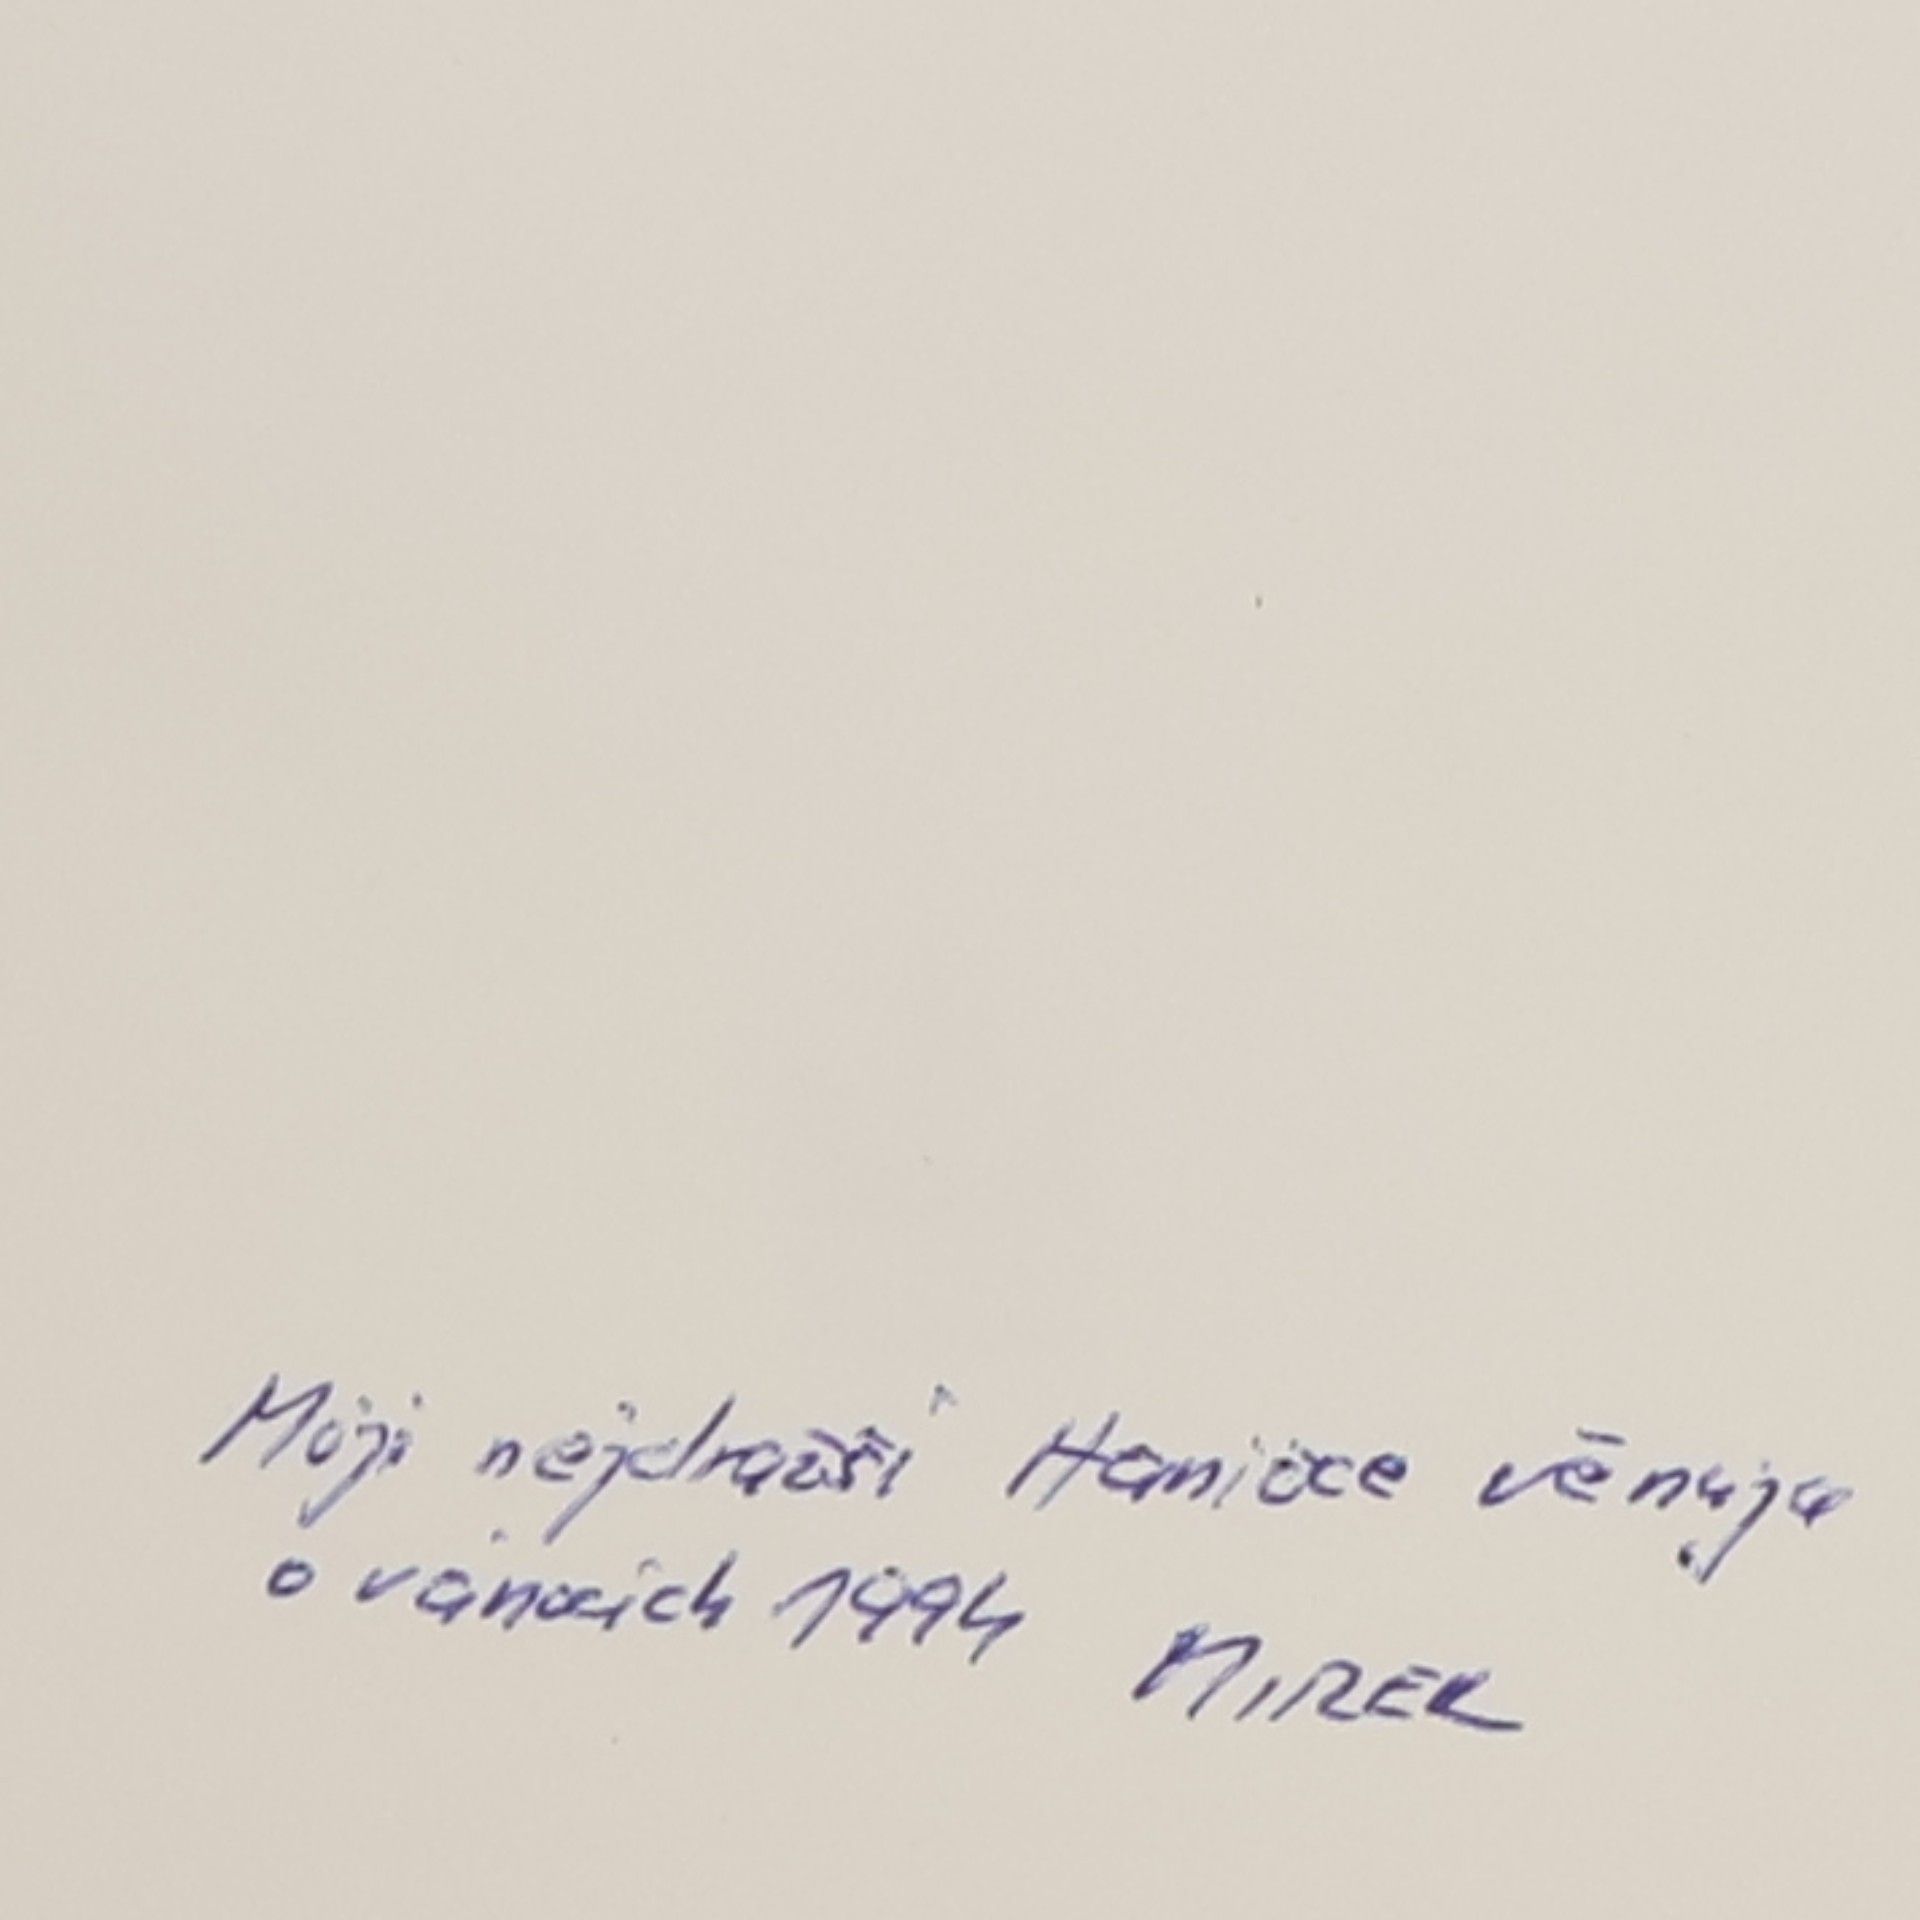 Moji nejdražší Haničce věnuje
o vánocích 1994
MIREK